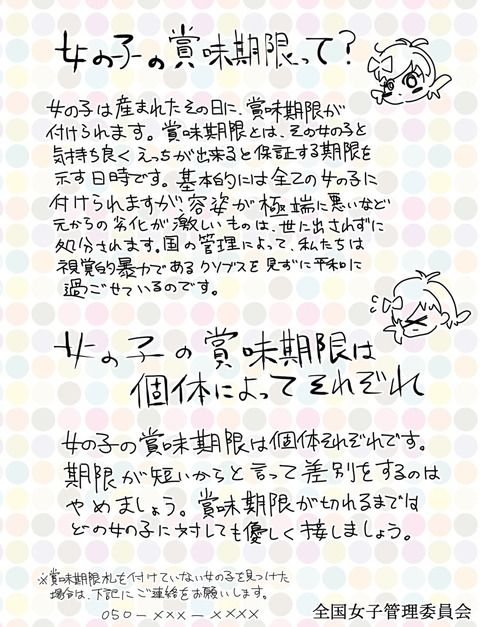 女の子の賞味期限って?
女の子は産まれたその日に、賞味期限が
付けられます。賞味期限とは、その女の子と
気持ち良くえっちが出来ると保証する期限を
示す日時です。基本的には全ての女の子に
付けられますが、容姿が極端に悪いなど
元からの劣化が激しいものは、世に出されずに
処分されます。国の管理によって、私たちは
視覚的暴力であるクソブスを見ずに平和に
過ごせているのです。
女の子の賞味期限は
個体によってそれぞれ
女の子の賞味期限は個体それぞれです。
期限が短いからと言って差別をするのは
やめましょう。賞味期限が切れるまでは
どの女の子に対しても優しく接しましょう。
※賞味期限札を付けていない女の子を見つけた
場合は、下記にご連絡をお願いします。
050-×××-××××
全国女子管理委員会